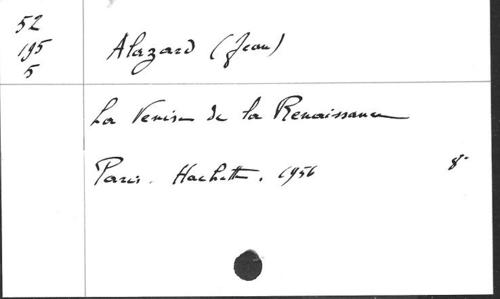 52
195
5
Alazard (Jean)
La Venise de la Renaissance
Paris. Hachette. 1956 8°